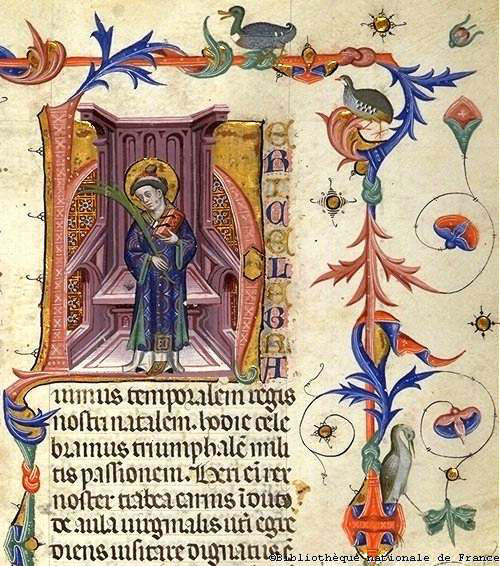 HERI CELEBRA
uimus temporalem regis
nostri natalem. hodie cele
bramus triumphalē mili
tis passionem. Heri eī rex
noster trabea carnis īdut᷒
de aula uirginalis utī egre
diens uisitare dignatus ē
©Bibliothèque nationale de France